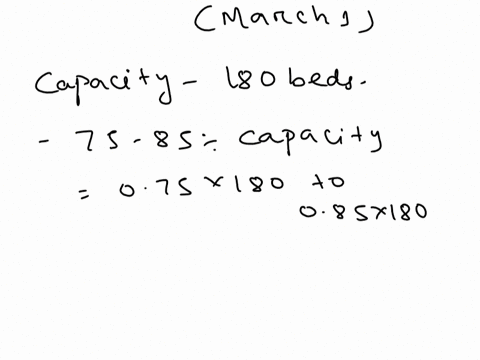 (March 1)
Capacity - 180 beds.
- 75 - 85% capacity
= 0.75 × 180 to
0.85×180